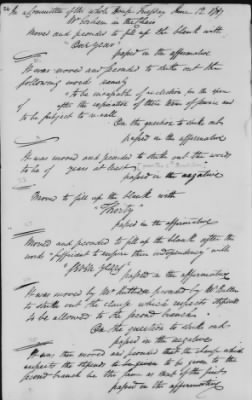 In a Committee of the whole House Tuesday June 12. 1787
Mr Gorham in the Chair
Moved and seconded to fill up the blank with
"Three years"
passed in the affirmative
It was moved and seconded to strike out the
following words namely
"to be incapable of re-election for the space of
after the expiration of their term of service and
to be subject to recall
On the question to strike out
passed in the affirmative
It was moved and seconded to strike out the words
to be of years at least
passed in the negative
Moved to fill up the blank with
"Thirty"
passed in the affirmative
Moved and seconded to fill up the blank after the
words "sufficient to ensure their independency" with
"Seven years"
passed in the affirmative
It was moved by Mr Rutledge seconded by Mr Butler
to strike out the clause which respects stipends
to be allowed to the second branch
On the question to strike out
passed in the negative
It was then moved and seconded that the clause which
respects the stipends to be given to the
second branch be the same as that of the first
passed in the affirmative